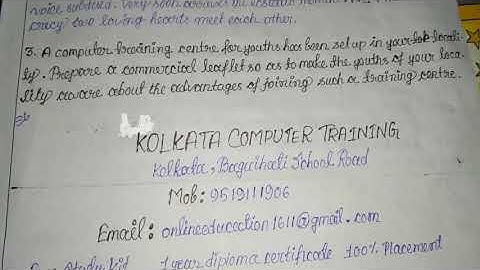 voice subdued. Very soon
crazy two loving hearts meet each other.
3. A computer training centre for youths has been set up in your locali-
ty. Prepare a commercial leaflet so as to make the youths of your loca-
lity aware about the advantages of joining such a training centre.
KOLKATA COMPUTER TRAINING
Kolkata, Baguihati School Road
Mob: 9519111906
Email: onlineeducation1611@gmail.com
Free Study Kit 1 year diploma certificate 100% Placement